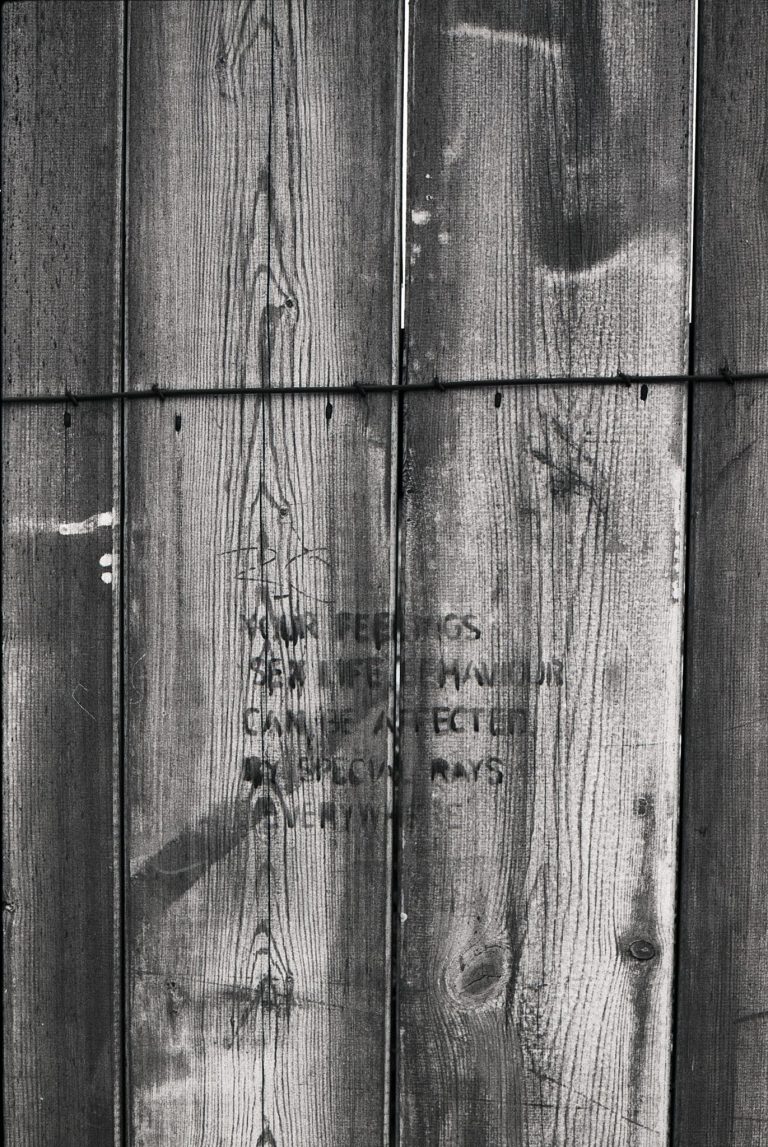 YOUR FEELINGS
SEX LIFE, BEHAVIOUR
CAN BE AFFECTED
BY SPECIAL RAYS
EVERYWHERE